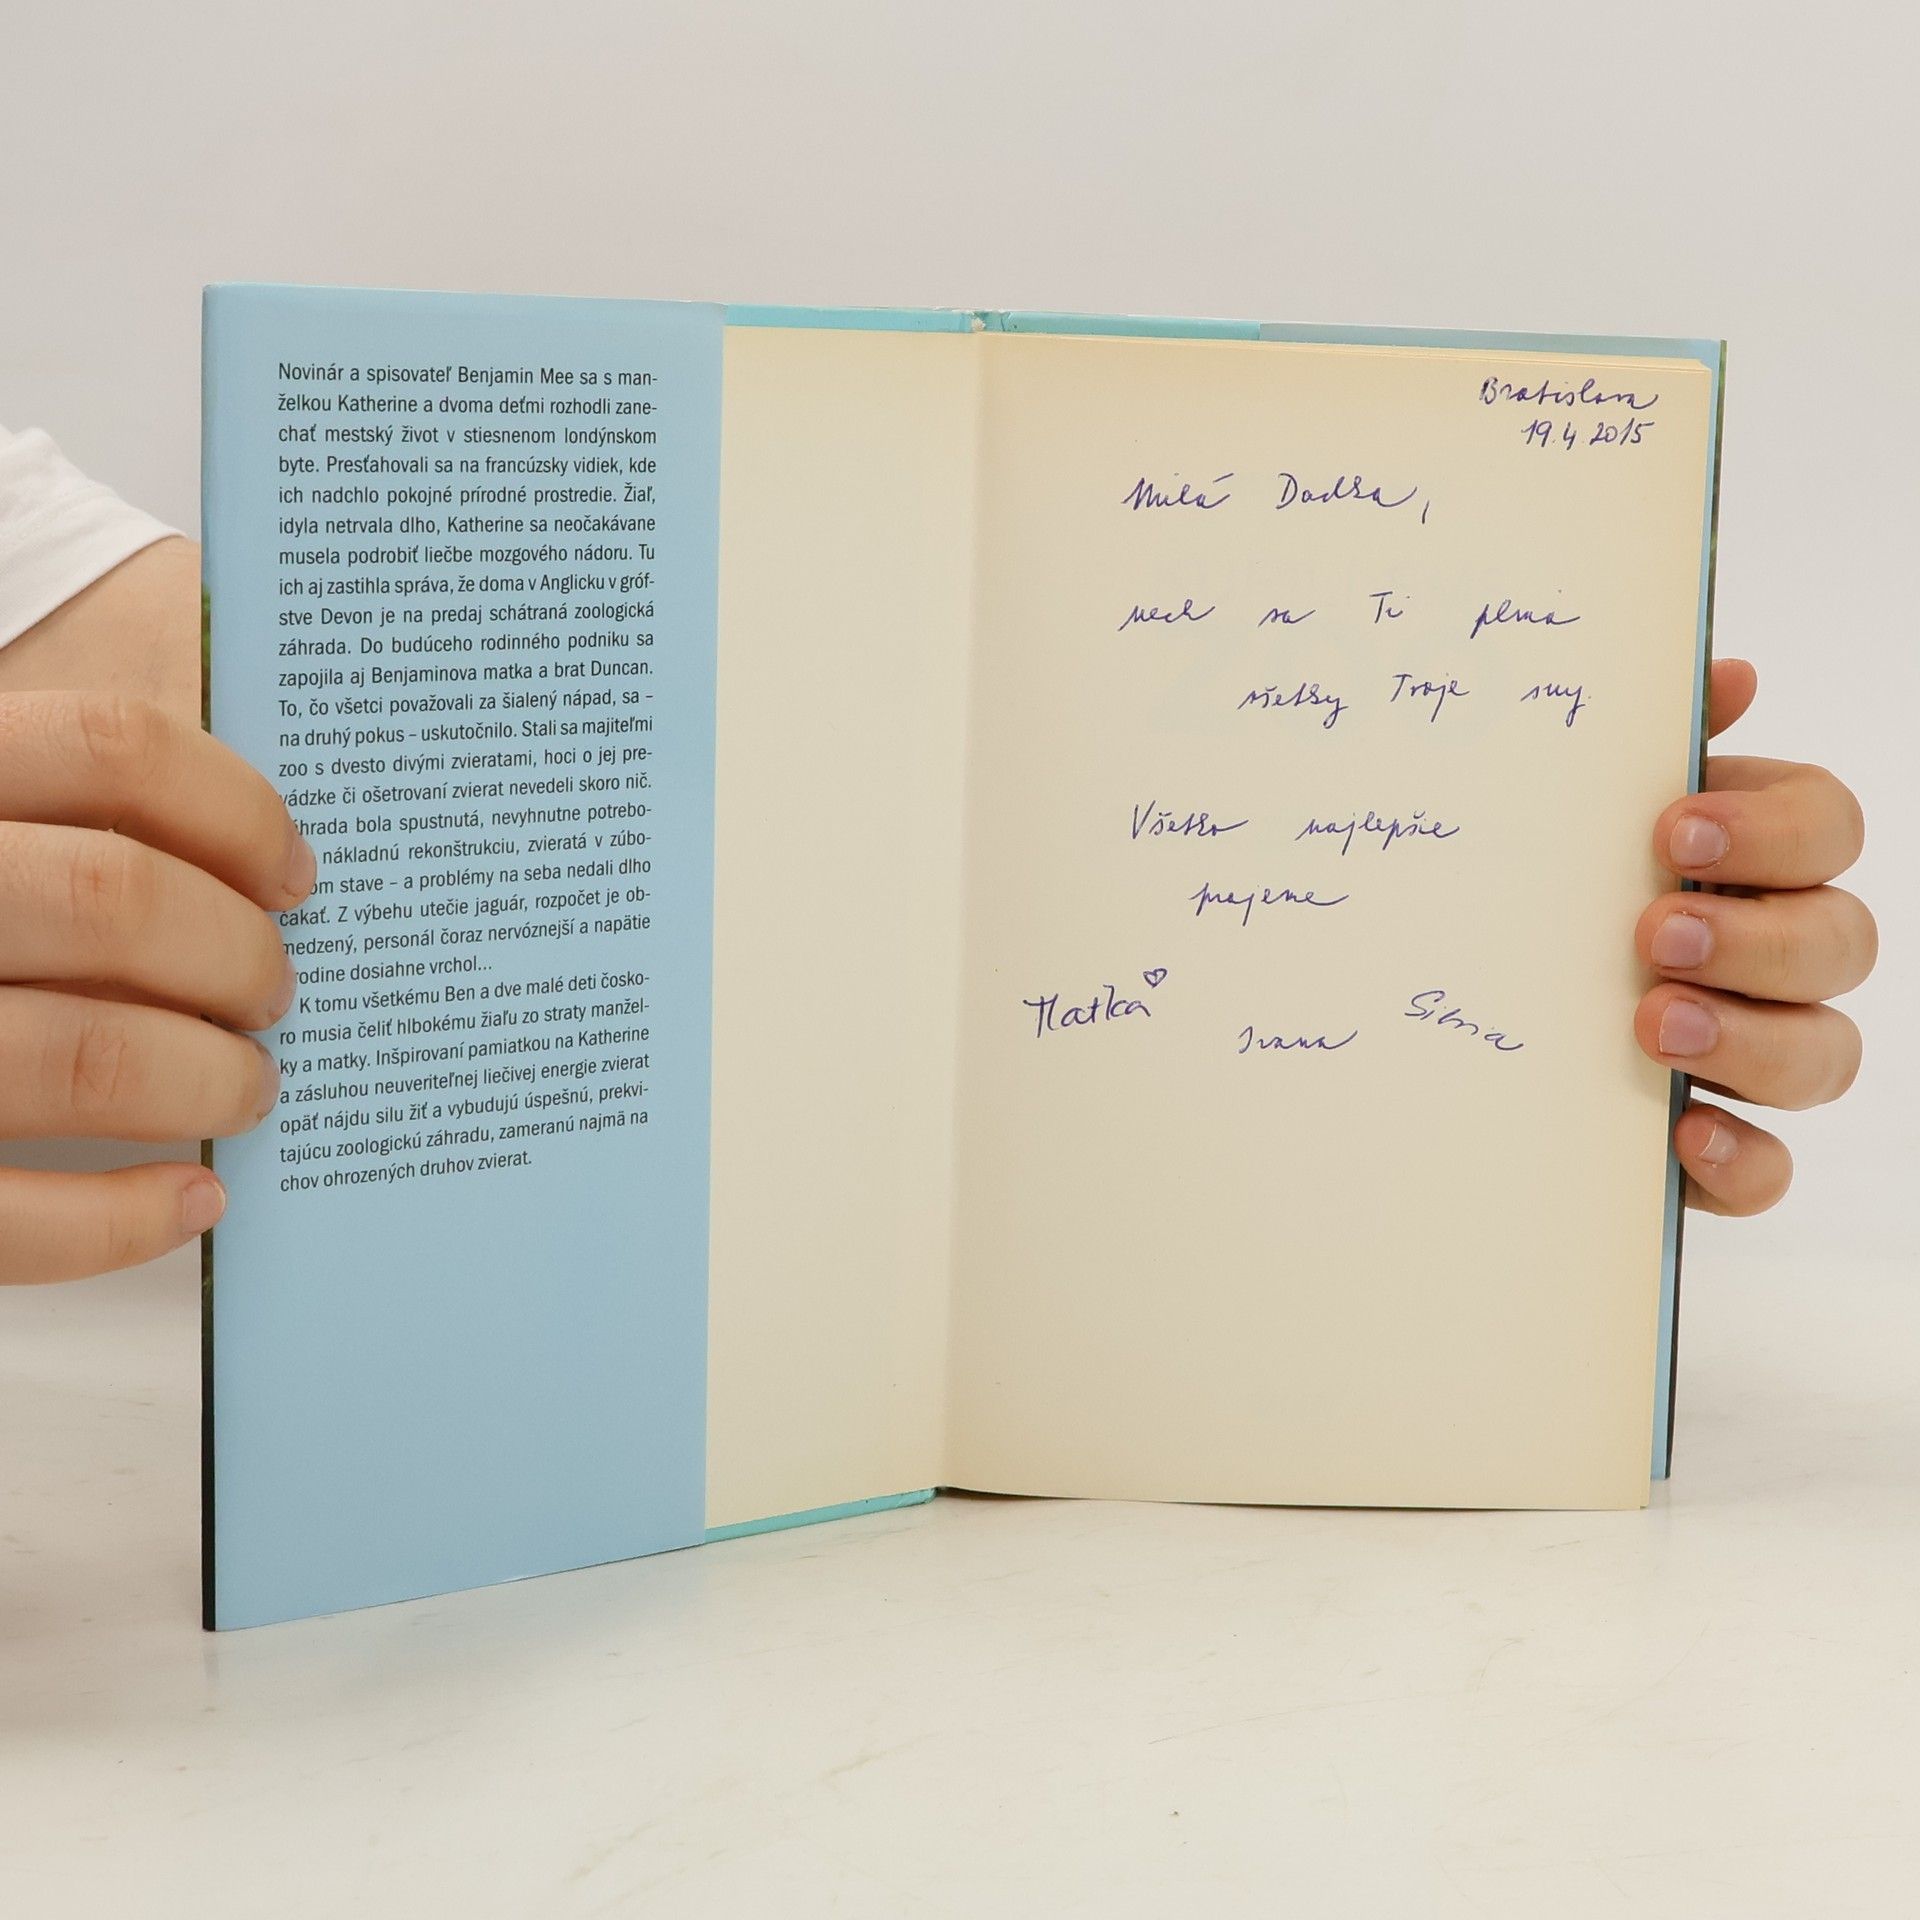 Novinár a spisovateľ Benjamin Mee sa s man-
želkou Katherine a dvoma deťmi rozhodli zane-
chať mestský život v stiesnenom londýnskom
byte. Presťahovali sa na francúzsky vidiek, kde
ich nadchlo pokojné prírodné prostredie. Žiaľ,
idyla netrvala dlho, Katherine sa neočakávane
musela podrobiť liečbe mozgového nádoru. Tu
ich aj zastihla správa, že doma v Anglicku v gróf-
stve Devon je na predaj schátraná zoologická
záhrada. Do budúceho rodinného podniku sa
zapojila aj Benjaminova matka a brat Duncan.
To, čo všetci považovali za šialený nápad, sa –
na druhý pokus – uskutočnilo. Stali sa majiteľmi
zoo s dvesto divými zvieratami, hoci o jej pre-
vádzke či ošetrovaní zvierat nevedeli skoro nič.
hrada bola spustnutá, nevyhnutne potrebo-
nákladnú rekonštrukciu, zvieratá v zúbo-
om stave – a problémy na seba nedali dlho
čakať. Z výbehu utečie jaguár, rozpočet je ob-
medzený, personál čoraz nervóznejší a napätie
rodine dosiahne vrchol...
K tomu všetkému Ben a dve malé deti čosko-
ro musia čeliť hlbokému žiaľu zo straty manžel-
ky a matky. Inšpirovaní pamiatkou na Katherine
a zásluhou neuveriteľnej liečivej energie zvierat
opäť nájdu silu žiť a vybudujú úspešnú, prekvi-
tajúcu zoologickú záhradu, zameranú najmä na
chov ohrozených druhov zvierat.
Bratislava
19.4.2015
Milá Dadka,
nech sa Ti plnia
všetky Tvoje sny.
Všetko najlepšie
prajeme
Katka
Ivana
Silvia